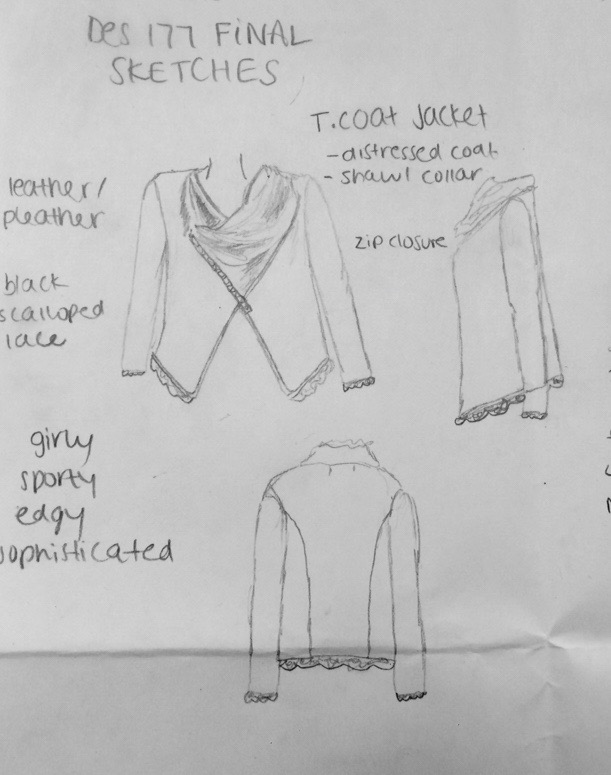 Des 177 FiNAL
SKETCHES
T.coat Jacket
- distressed coat
- shawl collar
leather/
pleather
zip closure
black
scalloped
lace
girly
sporty
edgy
sophisticated